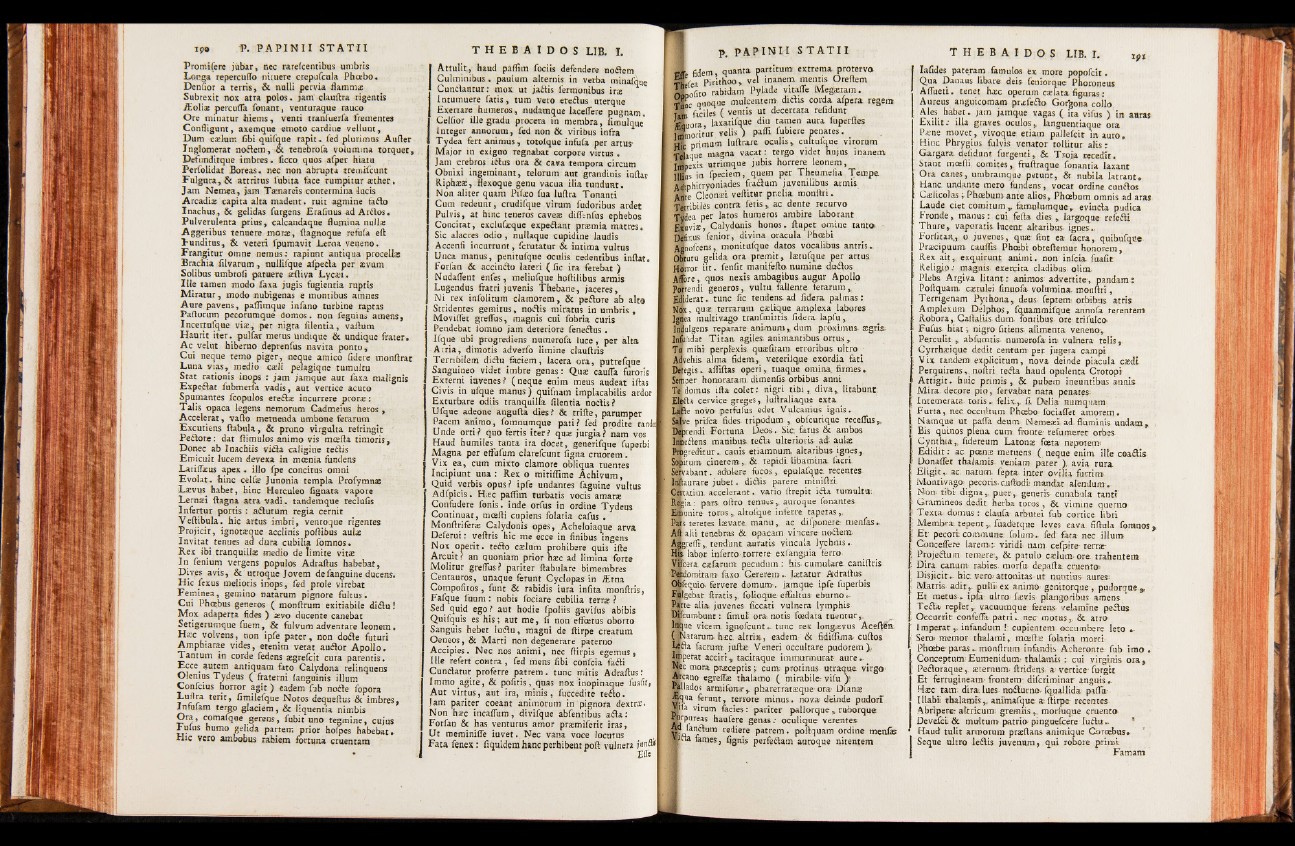 190 P. PAPINII STATII
Promiſere jubar, nec rareſcentibus umbris
Longa repercuſſo nituere crepuſcula Phœbo.
Denſior a terris, & nulli pervia flammæ
Subtexit nox atra polos. jam clauſtra rigentis
Æoliæ percuſſa ſonant, venturaque rauco
Ore minatur hiems, venti tranſuerſa frementes
Confligunt, axemque emoto cardine vellunt,
Dum cælum ſibi quiſque rapit. ſed plurimus Auſter
Inglomerat noctem, & tenebroſa volumina torquet,
Defunditque imbres. ſicco quos aſper hiatu
Perſolidat Boreas. nec non abrupta tremiſcunt
Fulgura, & attritus ſubita face rumpitur æther.
Jam Nemea, jam Tænareis contermina lucis
Arcadiæ capita alta madent. ruit agmine facto
Inachus, & gelidas ſurgens Eraſinus ad Arctos.
Pulverulenta prius, calcandaque flumina nullæ
Aggeribus tenuere moræ, ſtagnoque refuſa eſt
Funditus, & veteri ſpumavit Lerna veneno.
Frangitur omne nemus: rapiunt antiqua procellæ
Brachia ſilvarum, nulliſque aſpecta per ævum
Solibus umbroſi patuere æſtiva Lycæi.
Ille tamen modo ſaxa jugis fugientia ruptis
Miratur, modo nubigenas e montibus amnes
Aure pavens, paſſimque inſano turbine raptas
Paſtorum pecorumque domos. non ſegnius amens,
Incertuſque viæ, per nigra ſilentia, vaſtum
Haurit iter. pulſat metus undique & undique frater.
Ac velut hiberno deprenſus navita ponto,
Cui neque temo piger, neque amico ſidere monſtrat
Luna vias, medio cæli pelagique tumultu
Stat rationis inops: jam jamque aut ſaxa malignis
Expectat ſubmerſa vadis, aut vertice acuto
Spumantes ſcopulos erectæ incurrere proræ:
Talis opaca legens nemorum Cadmeius heros,
Accelerat, vaſto metuenda umbone ferarum
Excutiens ſtabula, & prono virgulta refringit
Pectore: dat ſtimulos animo vis mœſta timoris,
Donec ab Inachiis victa caligine tectis
Emicuit lucem devexa in mœnia fundens
Lariſſæus apex. illo ſpe concitus omni
Evolat. hinc celſæ Junonia templa Proſymnæ
Lævus habet, hinc Herculeo ſignata vapore
Lernæi ſtagna atra vadi. tandemque recluſis
Infertur portis: actutum regia cernit
Veſtibula. hic artus imbri, ventoque rigentes
Projicit, ignotæque acclinis poſtibus aulæ
Invitat tenues ad dura cubilia ſomnos.
Rex ibi tranquillæ medio de limite vitæ
In ſenium vergens populos Adraſtus habebat,
Dives avis, & utroque Jovem de ſanguine ducens.
Hic ſexus melioris inops, ſed prole virebat
Feminea, gemino natarum pignore fultus.
Cui Phœbus generos (monſtrum exitiabile dictu!
Mox adaperta fides) ævo ducente canebat
Setigerumque ſuem, & fulvum adventare leonem.
Hæc volvens, non ipſe pater, non docte futuri
Amphiarae vides, etenim vetat auctor Apollo.
Tantum in corde ſedens ægreſcit cura parentis.
Ecce autem antiquam fato Calydona relinquens
Olenius Tydeus (fraterni ſanguinis illum
Conſcius horror agit) eadem ſub nocte ſopora
Luſtra terit, ſimileſque Notos dequeſtus & imbres,
Infuſam tergo glaciem, & liquentia nimbis
Ora, comaſque gerens, ſubit uno tegmine, cujus
Fuſus humo gelida partem prior hoſpes habebat.
Hic vero ambobus rabiem fortuna cruentam
THEBAIDOS LIB. I.
Attulit, haud paſſim ſociis defendere noctem
Culminibus. paulum alternis in verba minaſque
Cunctantur: mox ut jactis ſermonibus iræ
Intumuere ſatis, tum vero erectus uterque
Exertare humeros, nudamque laceſſere pugnam.
Celſior ille gradu procera in membra, ſimulque
Integer annorum, ſed non & viribus infra
Tydea fert animus, totoſque infuſa per artus
Major in exiguo regnabat corpore virtus.
Jam crebros ictus ora & cava tempora circum
Obnixi ingeminant, telorum aut grandinis inſtar
Riphææ, flexoque genu vacua ilia tundunt.
Non aliter quam Piſæo ſua luſtra Tonanti
Cum redeunt, crudiſque virum ſudoribus ardet
Pulvis, at hinc teneros caveæ diſſenſus ephebos
Concitat, excluſæque expectant præmia matres.
Sic alacres odio, nullaque cupidine laudis
Accenſi incurrunt, ſcrutatur & intima vultus
Unca manus, penituſque oculis cedentibus inſtat.
Forſan & accincto lateri (ſic ira ferebat)
Nudaſſent enſes, meliuſque hoſtilibus armis
Lugendus fratri juvenis Thebane, jaceres,
Ni rex inſolitum clamorem, & pectore ab alto
Stridentes gemitus, noctis miratus in umbris,
Moviſſet greſſus, magnis cui ſobria curis
Pendebat ſomno jam deteriore ſenectus.
Iſque ubi progrediens numeroſa luce, per alta
Atria, dimotis adverſo limine clauſtris
Terribilem dictu faciem, lacera ora, putreſque
Sanguineo videt imbre genas: Quæ cauſſa furoris
Externi juvenes? (neque enim meus audeat iſtas
Civis in uſque manus) quiſnam implacabilis ardor
Exturbare odiis tranquilla ſilentia noctis?
Uſque adeone anguſta dies? & triſte, parumper
Pacem animo, ſomnumque pati? ſed prodite tandem
Unde orti? quo fertis iter? quæ jurgia? nam vos
Haud humiles tanta ira docet, generiſque ſuperbi
Magna per effuſum clareſcunt ſigna cruorem.
Vix ea, cum mixto clamore obliqua tuentes
Incipiunt una: Rex o mitiſſime Achivum,
Quid verbis opus? ipſe undantes ſaguine vultus
Adſpicis. Hæc paſſim turbatis vocis amaræ
Confudere ſonis. inde orſus in ordine Tydeus
Continuat, mœſti cupiens ſolatia caſus.
Monſtriferæ Calydonis opes, Acheloiaque arva
Deſerui: veſtris hic me ecce in finibus ingens
Nox operit. tecto cælum prohibere quis iſte
Arcuit? an quoniam prior hæc ad limina forte
Molitur greſſus? pariter ſtabulare bimembres
Centauros, unaque ferunt Cyclopas in Ætna
Compoſitos, ſunt & rabidis jura inſita monſtris,
Faſque ſuum: nobis ſociare cubilia terræ?
Sed quid ego? aut hodie ſpoliis gaviſus abibis
Quiſquis es his; aut me, ſi non effœtus oborto
Sanguis hebet luctu, magni de ſtirpe creatum
Oeneos, & Marti non degenerare paterno
Accipies. Nec nos animi, nec ſtirpis egemus,
Ille refert contra, ſed mens ſibi conſcia facti
Cunctatur proferre patrem. tunc mitis Adraſtus:
Immo agite, & poſitis, quas nox inopinaque ſuaſit,
Aut virtus, aut ira, minis, ſuccedite tecto.
Jam pariter coeant animorum in pignora dextræ.
Non hæc incaſſum, diviſque abſentibus acta:
Forſan & has venturus amor præmiſerit iras,
Ut meminiſſe iuvet. Nec vana voce locutus
Fata ſenex: ſiquidem hanc perhibent poſt vulnera junctis
Eſſe
P. PAPINII STATII
Eſſe fidem, quanta partitum extrema protervo
Theſea Pirithoo, vel inanem mentis Oreſtem
Oppoſito rabidam Pylade vitaſſe Megæram.
Tunc quoque mulcentem dictis corda aſpera regem
Jam faciles (ventis ut decertata reſidunt
Æquora, laxatiſque diu tamen aura ſuperſtes
Immoritur velis) paſſi ſubiere penates.
Hic primum luſtrare oculis, cultuſque virorum
Telaque magna vacat: tergo videt hujus inanem
Impexis utrimque jubis horrere leonem,
Illius in ſpeciem, quem per Theumeſia Tempe
Amphitryoniades fractum juvenilibus armis
Ante Cleonæi veſtitur prœlia monſtri.
Terribiles contra ſetis, ac dente recurvo
Tydea per latos humeros ambire laborant
Exuviæ, Calydonis honos. ſtupet omine tanto
Defixus ſenior, divina oracula Phœbi
Agnoſcens, monituſque datos vocalibus antris.
Obtutu gelida ora premit, lætuſque per artus
Horror iit. ſenſit manifeſto numine ductos
Affore, quos nexis ambagibus augur Apollo
Portendi generos, vultu fallente ferarum,
Ediderat. tunc ſic tendens ad ſidera palmas:
Nox, quæ terrarum cælique amplexa labores
Ignea multivago tranſmittis ſidera lapſu,
Indulgens reparare animum, dum proximus ægris
Infundat Titan agiles animantibus ortus,
Tu mihi perplexis quæſitam erroribus ultro
Advehis alma fidem, veteriſque exordia fati
Detegis. aſſiſtas operi, tuaque omina firmes.
Semper honoratam dimenſis orbibus anni
Te domus iſta colet: nigri tibi, diva, litabunt
Electa cervice greges, luſtraliaque exta
Lacte novo perfuſus edet Vulcanius ignis.
Salve priſca fides tripodum, obſcurique receſſus.
Deprendi Fortuna Deos. Sic fatus & ambos
Innectens manibus tecta ulterioris ad aulæ
Progreditur. canis etiamnum altaribus ignes,
Sopitum cinerem, & tepidi libamina ſacri
Servabant. adolere focos, epulaſque recentes
Inſtaurare jubet. dictis parere miniſtri
Certatim accelerant. vario ſtrepit icta tumultu
Regia: pars oſtro tenues, auroque ſonantes
Emunire toros, altoſque inferre tapetas,
Pars teretes lævare manu, ac diſponere menſas.
Aſt alii tenebras & opacam vincere noctem
Aggreſſi, tendunt auratis vincula lychnis.
His labor inſerto torrere exſanguia ferro
Viſcera cæſarum pecudum: his cumulare caniſtris
Perdomitam ſaxo Cererem. lætatur Adraſtus
Obſequio fervere domum. jamque ipſe ſuperbis
Fulgebat ſtratis, ſolioque effultus eburno.
Parte alia juvenes ſiccati vulnera lymphis
Diſcumbunt: ſimul ora notis fœdata tuentur,
Inque vicem ignoſcunt. tunc rex longævus Aceſten
(Natarum hæc altrix, eadem & fidiſſima cuſtos
Lecta ſacrum juſtæ Veneri occultare pudorem),
Imperat acciri, tacitaque immurmurat aure.
Nec mora præceptis; cum protinus utraque virgo
Arcano egreſſæ thalamo (mirabile viſu)
Pallados armiſonæ, pharetratæque ora Dianæ
Æqua ferunt, terrore minus. nova deinde pudori
Viſa virum facies: pariter pallorque, ruborque
Purpureas hauſere genas: oculique verentes
Ad ſanctum rediere patrem. poſtquam ordine menſæ
Victa fames, ſignis perfectam auroque nitentem
THEBAIDOS LIB. I. 191
Iaſides pateram famulos ex more popoſcit.
Qua Danaus libare deis ſeniorque Phoroneus
Aſſueti. tenet hæc operum cælata figuras:
Aureus anguicomam præſecto Gorgona collo
Ales habet. jam jamque vagas (ita viſus) in auras
Exilit: illa graves oculos, languentiaque ora
Pæne movet, vivoque etiam palleſcit in auro.
Hinc Phrygius fulvis venator tollitur alis:
Gargara deſidunt ſurgenti, & Troja recedit.
Stant mœſti comites, fruſtraque ſonantia laxant
Ora canes, umbramque petunt, & nubila latrant.
Hanc undante mero fundens, vocat ordine cunctos
Cælicolas; Phœbum ante alios, Phœbum omnis ad aras
Laude ciet comitum, famulumque, evincta pudica
Fronde, manus: cui feſta dies, largoque refecti
Thure, vaporatis lucent altaribus ignes.
Forſitan, o juvenes, quæ ſint ea ſacra, quibuſque
Præcipuum cauſſis Phœbi obteſtemur honorem,
Rex ait, exquirunt animi. non inſcia ſuaſit
Religio: magnis exercita cladibus olim
Plebs Argiva litant: animos advertite, pandam:
Poſtquam cærulei ſinuoſa volumina monſtri,
Terrigenam Pythona, deus ſeptem orbibus atris
Amplexum Delphos, ſquammiſque annoſa terentem
Robora, Caſtaliis dum fontibus ore triſulco
Fuſus hiat; nigro ſitiens alimenta veneno,
Perculit, abſumtis numeroſa in vulnera telis,
Cyrrhæique dedit centum per jugera campi
Vix tandem explicitum, nova deinde piacula cædi
Perquirens, noſtri tecta haud opulenta Crotopi
Attigit. huic primis, & pubem ineuntibus annis
Mira decore pio, ſervabat nata penates
Intemerata toris. felix, ſi Delia numquam
Furta, nec occultum Phœbo ſociaſſet amorem.
Namque ut paſſa deum Nemeæi ad fluminis undam,
Bis quinos plena cum fronte reſumeret orbes
Cynthia, ſidereum Latonæ fœta nepotem
Edidit: ac pœnæ metuens (neque enim ille coactis
Donaſſet thalamis veniam pater), avia rura
Eligit. ac natum ſepta inter ovilia furtim
Montivago pecoris cuſtodi mandat alendum.
Non tibi digna, puer, generis cunabula tanti
Gramineos dedit herba toros, & vimine querno
Texta domus: clauſa arbutei ſub cortice libri
Membra tepent, ſuadetque leves cava fiſtula ſomnos,
Et pecori commune ſolum. ſed fata nec illum
Conceſſere larem: viridi nam ceſpite terræ
Projectum temere, & patulo cælum ore trahentem
Dira canum rabies morſu depaſta cruento
Disjicit. hic vero attonitas ut nuntius aures
Matris adit, pulſi ex animo genitorque, pudorque,
Et metus. ipſa ultro ſævis plangoribus amens
Tecta replet, vacuumque ferens velamine pectus
Occurrit confeſſa patri. nec motus, & atro
Imperat, infandum! cupientem occumbere leto.
Sero memor thalami, mœſtæ ſolatia morti
Phœbe paras. monſtrum infandis Acheronte ſub imo.
Conceptum Eumenidum thalamis: cui virginis ora,
Pectoraque, æternum ſtridens a vertice ſurgit
Et ferrugineam frontem diſcriminat anguis.
Hæc tam dira lues nocturno ſquallida paſſu
Illabi thalamis, animaſque a ſtirpe recentes
Abripere altricum gremiis, morſuque cruento
Deveſci & multum patrio pingueſcere luctu.
Haud tulit armorum præſtans animique Corœbus.
Seque ultro lectis juvenum, qui robore primi
Famam